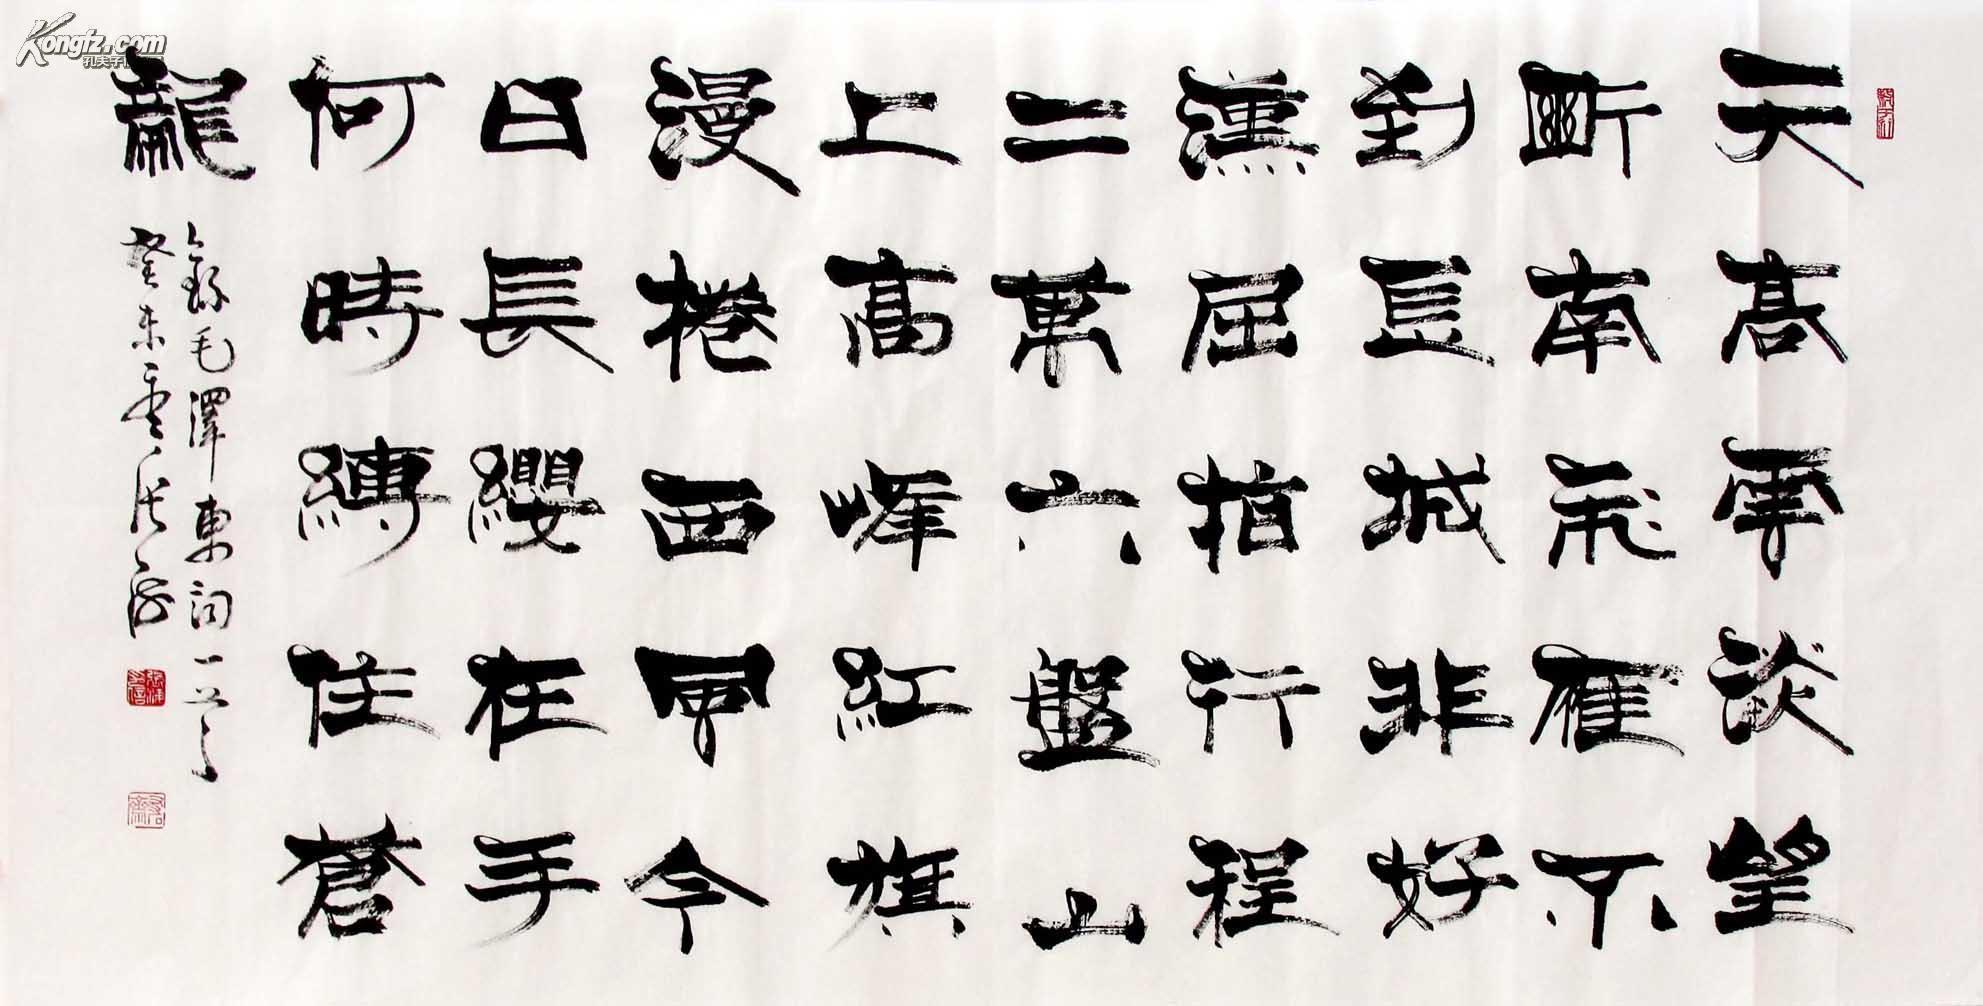 天高雲淡望
斷南飛雁不
到長城非好
漢屈指行程
二萬六盤山
上高峰紅旗
漫捲西風今
日長纓在手
何時縛住蒼
龍
錄毛澤東詞一首
癸未夏
Kongfz.com
孔夫子